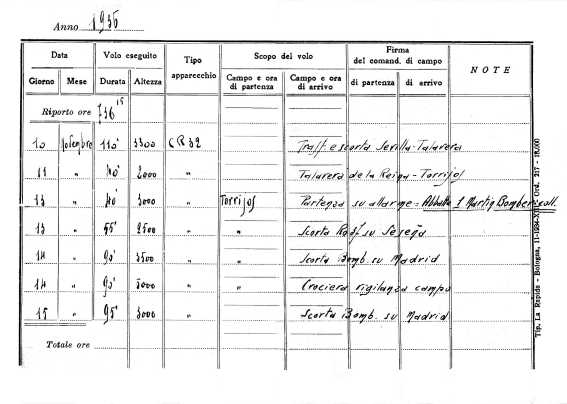 Anno 1936
Data Volo eseguito Tipo apparecchio Scopo del volo Firma del comand. di campo NOTE
Giorno Mese Durata Altezza Campo e ora di partenza Campo e ora di arrivo di partenza di arrivo
Riporto ore 736 15
10 Novembre 110' 3300 CR32 Traff. e scorta Sevilla-Talavera
11 " 40' 2000 " Talavera de la Reina - Torrijos
13 " 40' 3000 " Torrijos Partenza su allarme = Abbattuto 1 Martin Bomber in coll.
13 " 55' 2500 " " Scorta Ro37 su Seseña
14 " 90' 3500 " " Scorta Bomb. su Madrid
14 " 90' 5000 " " Crociera vigilanza campo
15 " 95' 3000 " Scorta Bomb. su Madrid
Totale ore
Tip. La Rapida - Bologna, 11-1934-XIII - Ord. 217 - 15.000